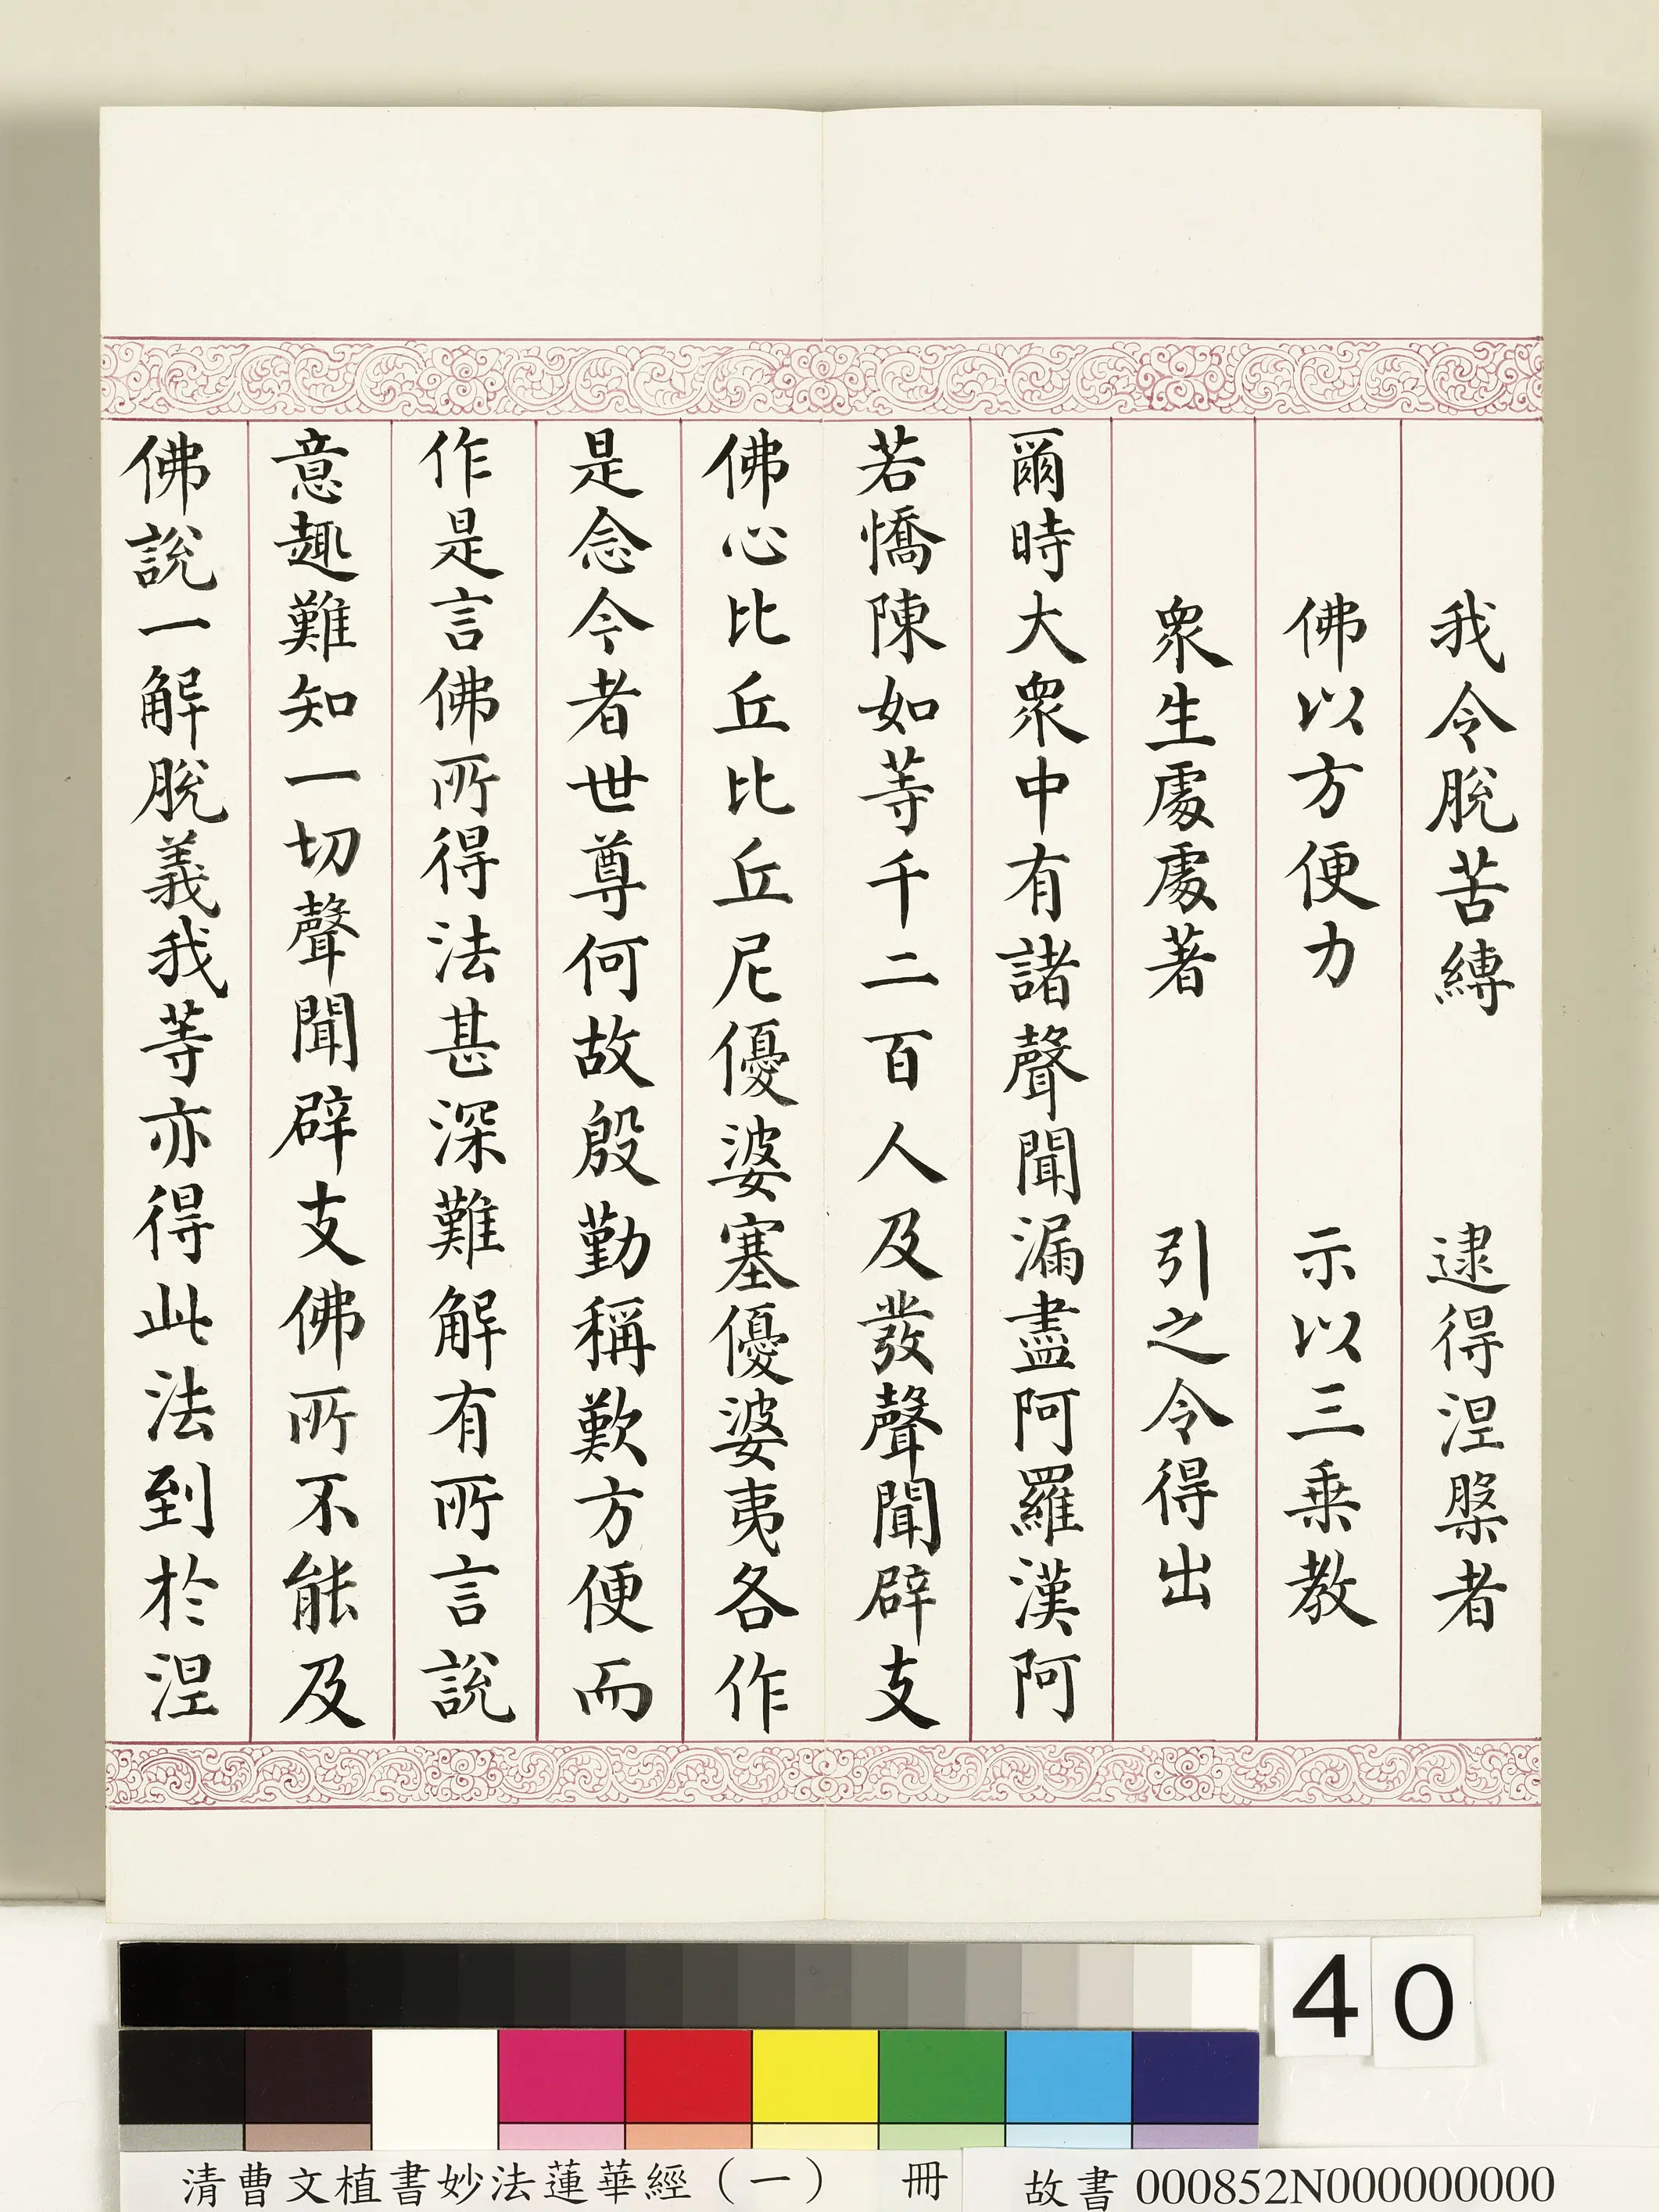 我令脫苦縛　逮得涅槃者
佛以方便力　示以三乗教
衆生處處著　引之令得出
爾時大衆中有諸聲聞漏盡阿羅漢阿
若憍陳如等千二百人及發聲聞辟支
佛心比丘比丘尼優婆塞優婆夷各作
是念今者世尊何故殷勤稱歎方便而
作是言佛所得法甚深難解有所言說
意趣難知一切聲聞辟支佛所不能及
佛說一解脫義我等亦得此法到於涅
40
清曹文植書妙法蓮華經（一）　冊　故書000852N000000000